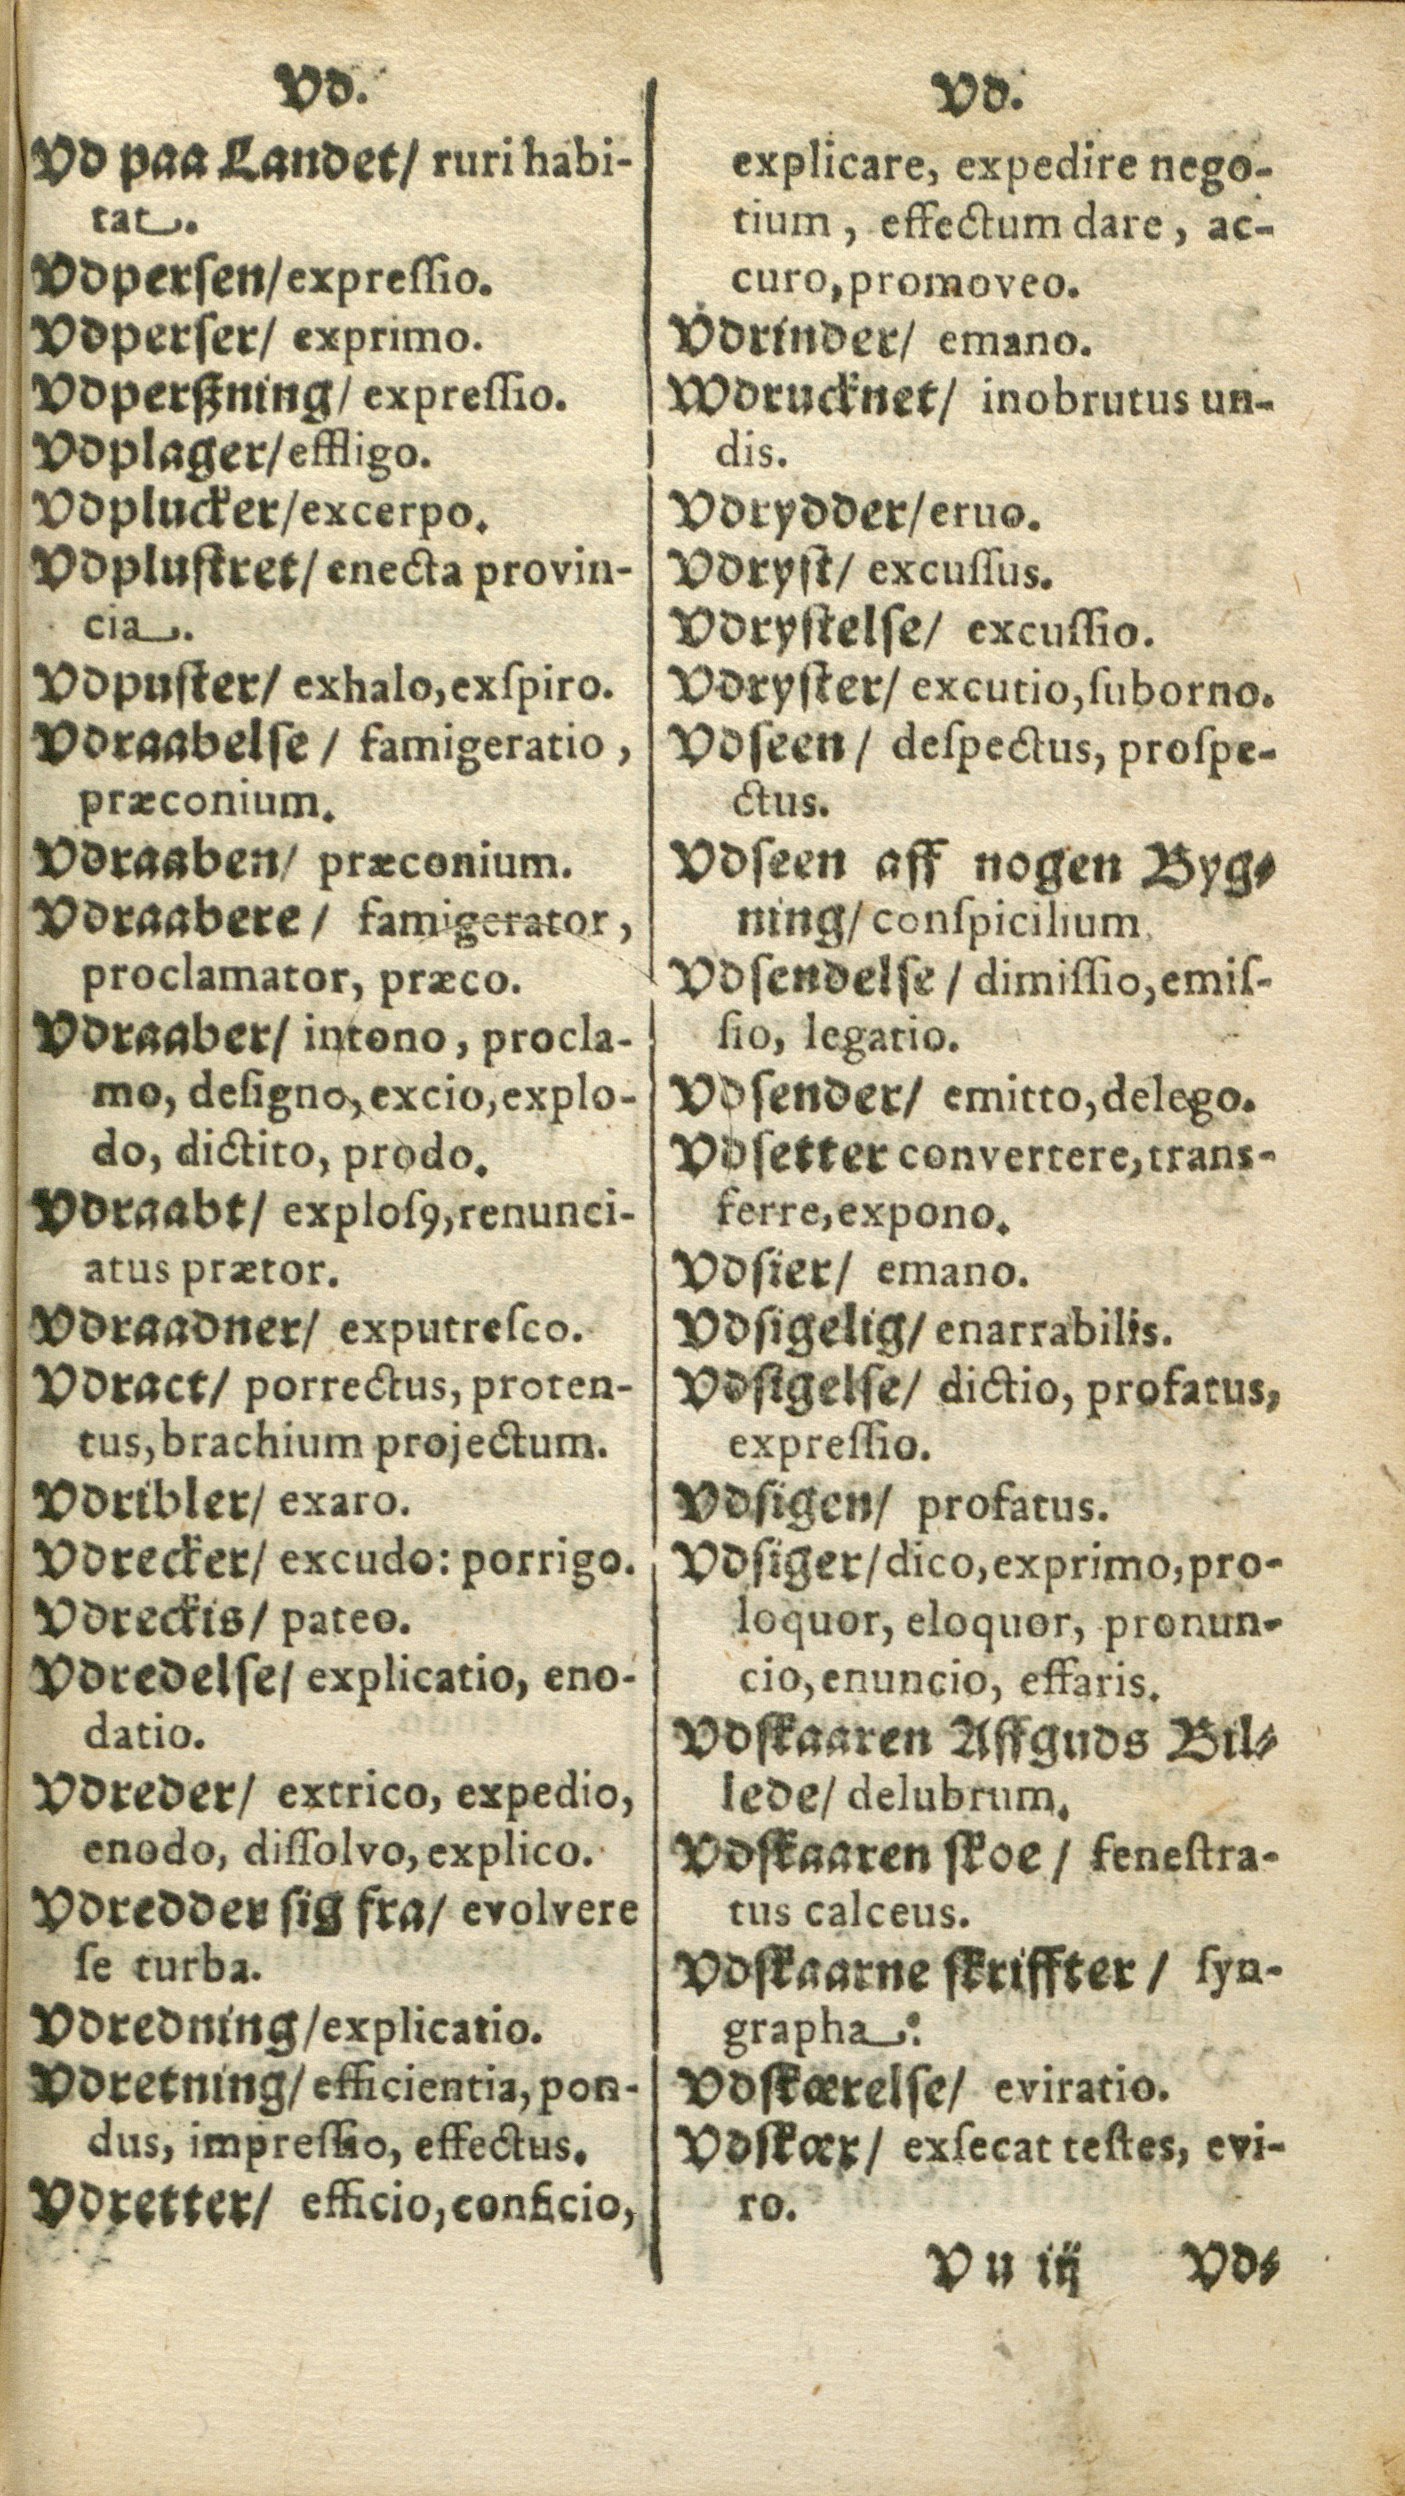 Vd.
Vd paa Landet/ ruri habi-
tat.
Vdperſen/expreſſio.
Vdperſer/ exprimo.
Vdperſzning/ expreſſio.
Vdplager/effligo.
Vdplucker/excerpo.
Vdpluſtret/ enecta provin-
cia.
Vdpuſter/ exhalo,exſpiro.
Vdraabelſe/ famigeratio,
præconium.
Vdraaben/ præconium.
Vdraabere/ famigerator,
proclamator, præco.
Vdraaber/ intono, procla-
mo, deſigno, excio,explo-
do, dictito, prodo.
Vdraabt/ exploſꝰ,renunci-
atus prætor.
Vdraadner/ exputreſco.
Vdract/ porrectus, proten-
tus,brachium projectum.
Vdribler/ exaro.
Vdrecker/ excudo: porrigo.
Vdreckis/ pateo.
Vdredelſe/ explicatio, eno-
datio.
Vdreder/ extrico, expedio,
enodo, diſſolvo, explico.
Vdredder ſig fra/ evolvere
ſe turba.
Vdredning/explicatio.
Vdretning/ efficientia, pon-
dus, impreſſio, effectus.
Vdretter/ efficio,conficio,
Vd.
explicare, expedire nego-
tium, effectum dare, ac-
curo,promoveo.
Vdrinder/ emano.
Wdrucknet/ inobrutus un-
dis.
Vdrydder/eruo.
Vdryſt/ excuſſus.
Vdryſtelſe/ excuſſio.
Vdryſter/ excutio,ſuborno.
Vdſeen/ deſpectus, proſpe-
ctus.
Vdſeen aff nogen Byg-
ning/ conſpicilium.
Vdſendelſe/ dimiſſio,emiſ-
ſio, legatio.
Vdſender/ emitto,delego.
Vdſetter convertere,trans-
ferre,expono.
Vdſier/ emano.
Vdſigelig/ enarrabilis.
Vdſigelſe/ dictio, profatus,
expreſſio.
Vdſigen/ profatus.
Vdſiger/dico,exprimo,pro-
loquor, eloquor, pronun-
cio,enuncio, effaris.
Vdſkaaren Affguds Bil-
lede/ delubrum.
Vdſkaaren ſkoe/ feneſtra-
tus calceus.
Vdſkaarne ſkriffter/ ſyn-
grapha:
Vdſkærelſe/ eviratio.
Vdſkær/ exſecat teſtes, evi-
ro.
V u iij Vd-